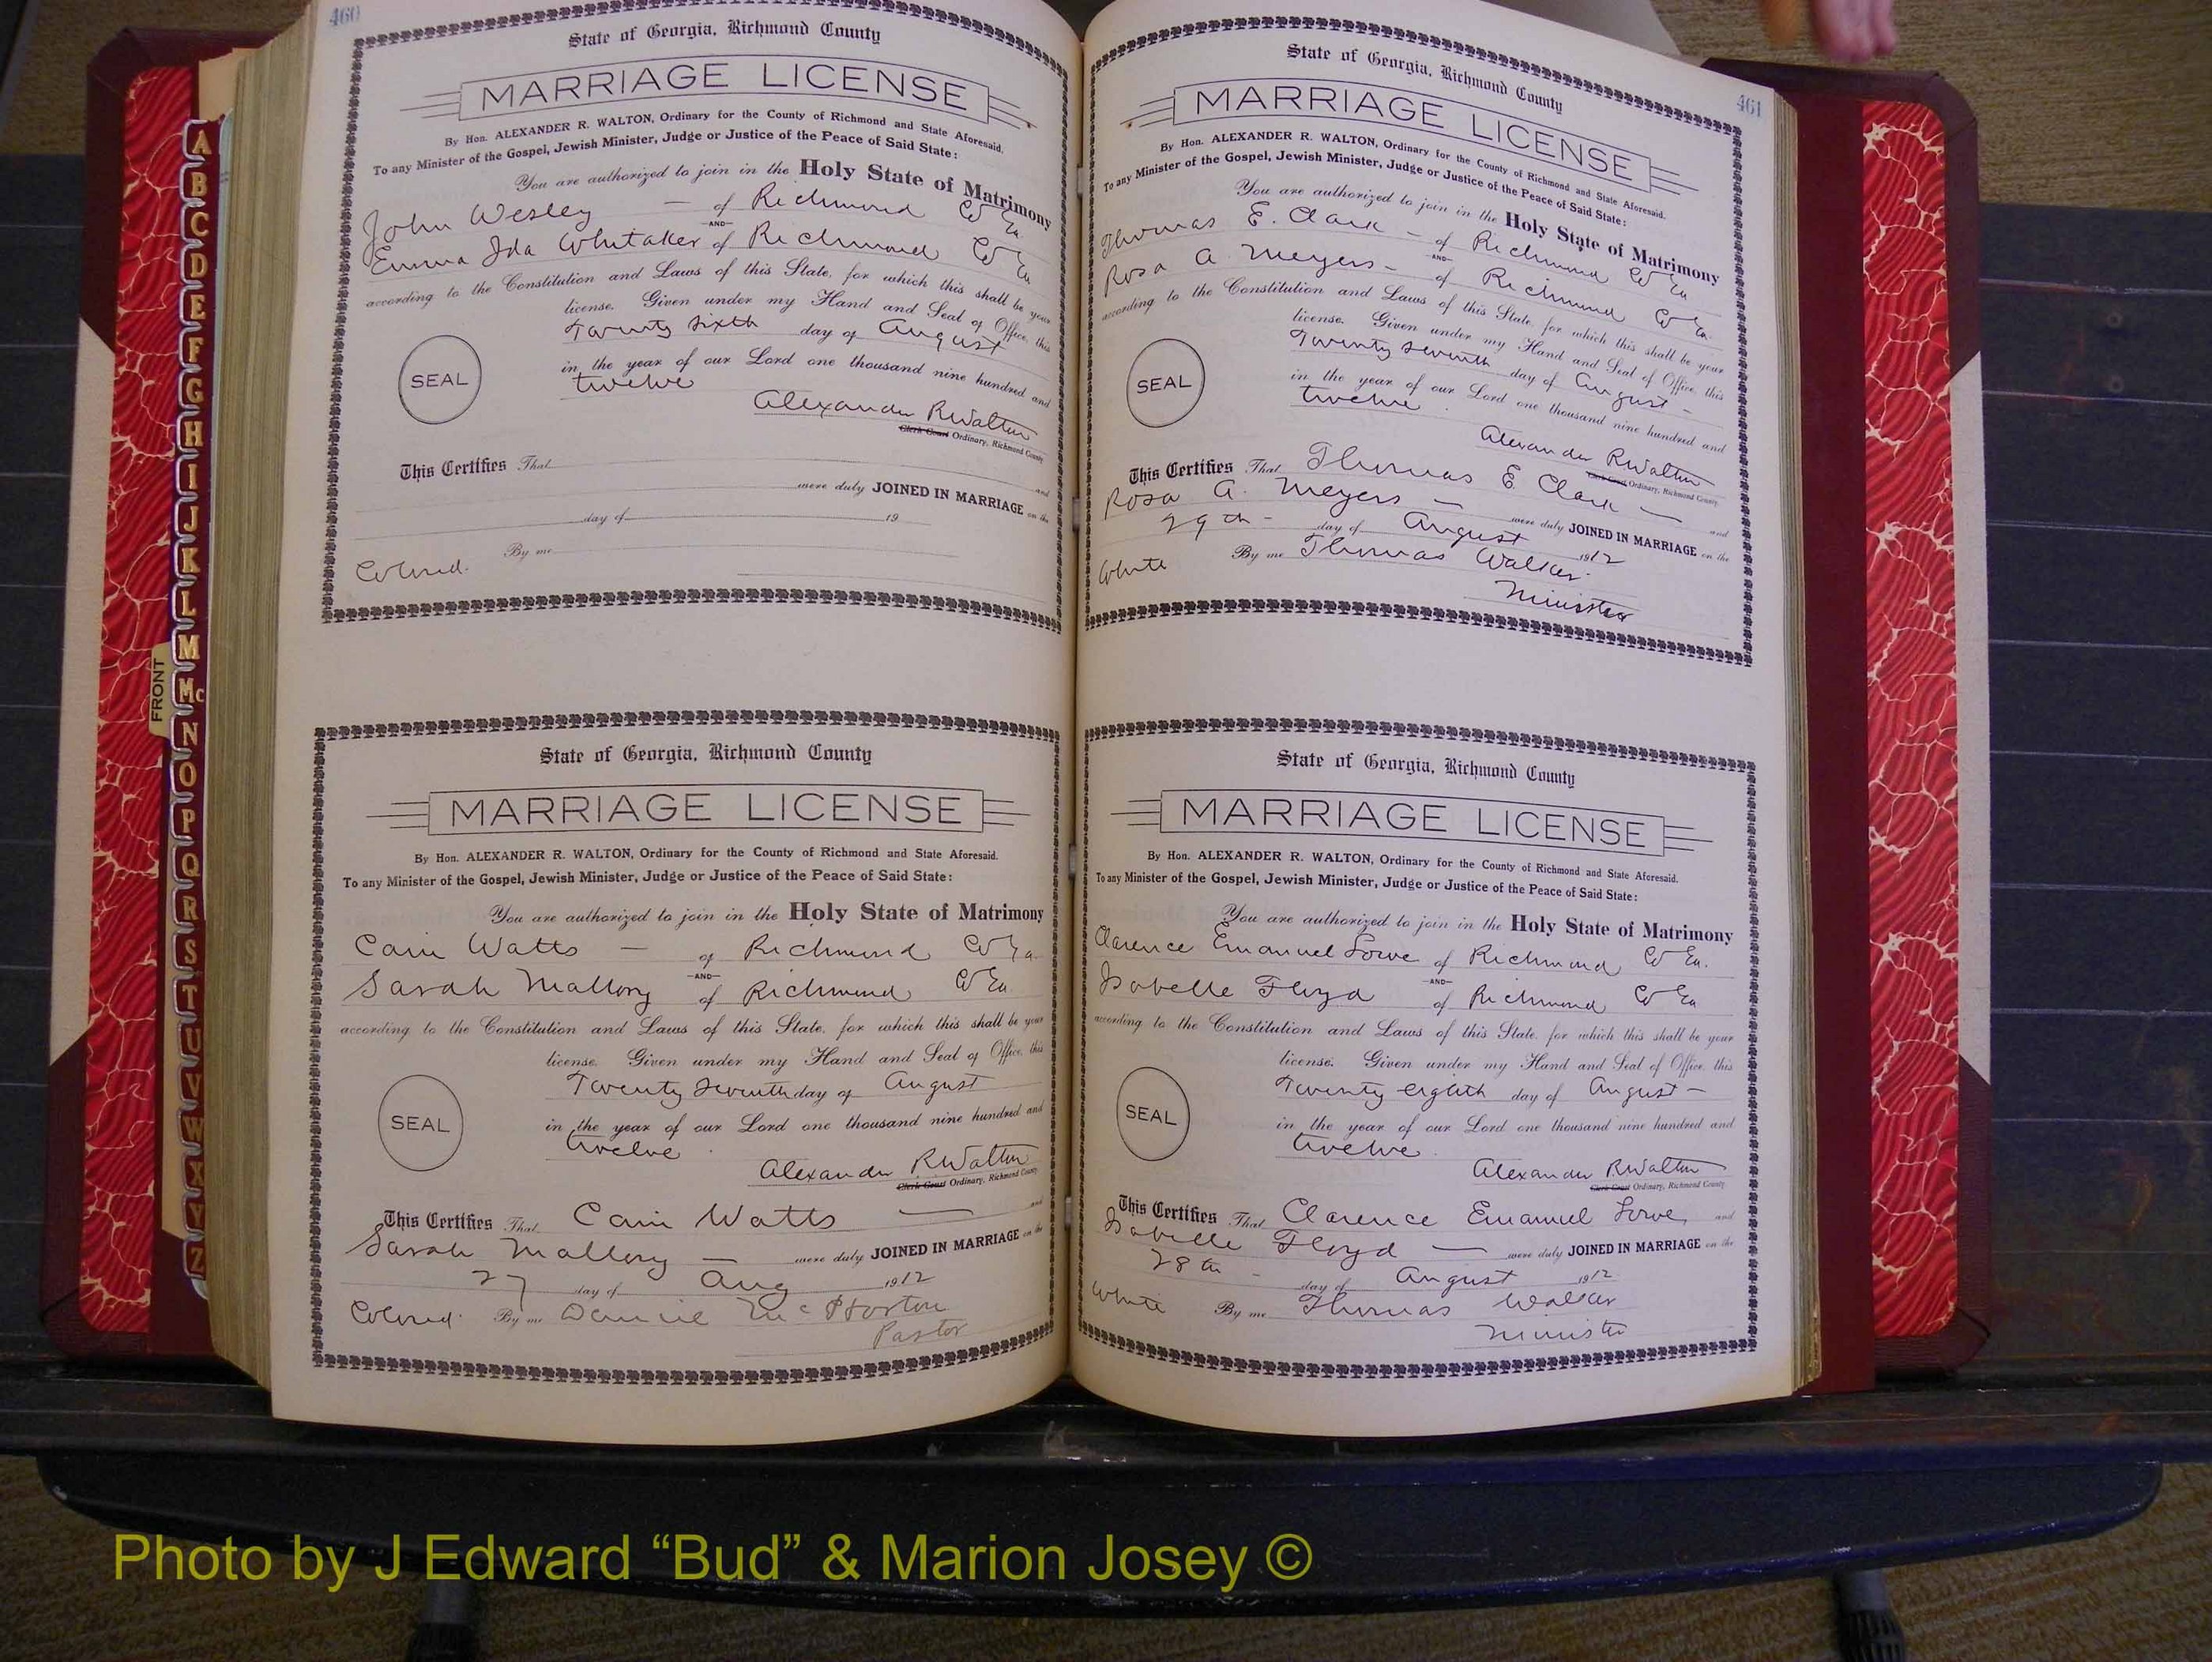 460
State of Georgia, Richmond County
MARRIAGE LICENSE
By Hon. ALEXANDER R. WALTON, Ordinary for the County of Richmond and State Aforesaid.
To any Minister of the Gospel, Jewish Minister, Judge or Justice of the Peace of Said State:
You are authorized to join in the Holy State of Matrimony
John Wesley — of Richmond Co Ga
AND
Emma Ida Whitaker of Richmond Co Ga
according to the Constitution and Laws of this State, for which this shall be your
license. Given under my Hand and Seal of Office, this
Twenty sixth day of August
in the year of our Lord one thousand nine hundred and
twelve
SEAL
Alexander R Walton
Clerk Court Ordinary, Richmond County
This Certifies That and
were duly JOINED IN MARRIAGE on the
day of 19
Colored. By me
State of Georgia, Richmond County
MARRIAGE LICENSE
By Hon. ALEXANDER R. WALTON, Ordinary for the County of Richmond and State Aforesaid.
To any Minister of the Gospel, Jewish Minister, Judge or Justice of the Peace of Said State:
You are authorized to join in the Holy State of Matrimony
Cain Watts — of Richmond Co Ga
AND
Sarah Mallory of Richmond Co Ga
according to the Constitution and Laws of this State, for which this shall be your
license. Given under my Hand and Seal of Office, this
Twenty seventh day of August
in the year of our Lord one thousand nine hundred and
twelve
SEAL
Alexander R Walton
Clerk Court Ordinary, Richmond County
This Certifies That Cain Watts — and
Sarah Mallory — were duly JOINED IN MARRIAGE on the
27 day of Aug 1912
Colored. By me Daniel Mc Horton
Pastor
461
State of Georgia, Richmond County
MARRIAGE LICENSE
By Hon. ALEXANDER R. WALTON, Ordinary for the County of Richmond and State Aforesaid.
To any Minister of the Gospel, Jewish Minister, Judge or Justice of the Peace of Said State:
You are authorized to join in the Holy State of Matrimony
Thomas E. Clark — of Richmond Co Ga
AND
Rosa A. Meyers — of Richmond Co Ga.
according to the Constitution and Laws of this State, for which this shall be your
license. Given under my Hand and Seal of Office, this
Twenty seventh day of August —
in the year of our Lord one thousand nine hundred and
twelve
SEAL
Alexander R Walton
Clerk Court Ordinary, Richmond County
This Certifies That Thomas E. Clark — and
Rosa A. Meyers — were duly JOINED IN MARRIAGE on the
29th — day of August 1912
White By me Thomas Walker
Minister
State of Georgia, Richmond County
MARRIAGE LICENSE
By Hon. ALEXANDER R. WALTON, Ordinary for the County of Richmond and State Aforesaid.
To any Minister of the Gospel, Jewish Minister, Judge or Justice of the Peace of Said State:
You are authorized to join in the Holy State of Matrimony
Clarence Emanuel Lowe of Richmond Co Ga.
AND
Isabelle Floyd of Richmond Co Ga
according to the Constitution and Laws of this State, for which this shall be your
license. Given under my Hand and Seal of Office, this
Twenty eighth day of August —
in the year of our Lord one thousand nine hundred and
twelve.
SEAL
Alexander R Walton
Clerk Court Ordinary, Richmond County
This Certifies That Clarence Emanuel Lowe, and
Isabelle Floyd — were duly JOINED IN MARRIAGE on the
28th — day of August 1912
White By me Thomas Walker
Minister
A
B
C
D
E
F
G
H
I
J
K
L
M
Mc
N
O
P
Q
R
S
T
U
V
W
X
Y
Z
FRONT
Photo by J Edward “Bud” & Marion Josey ©